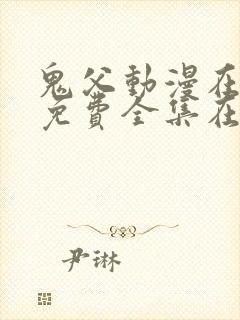 鬼父動漫在
免費全集在
尹琳